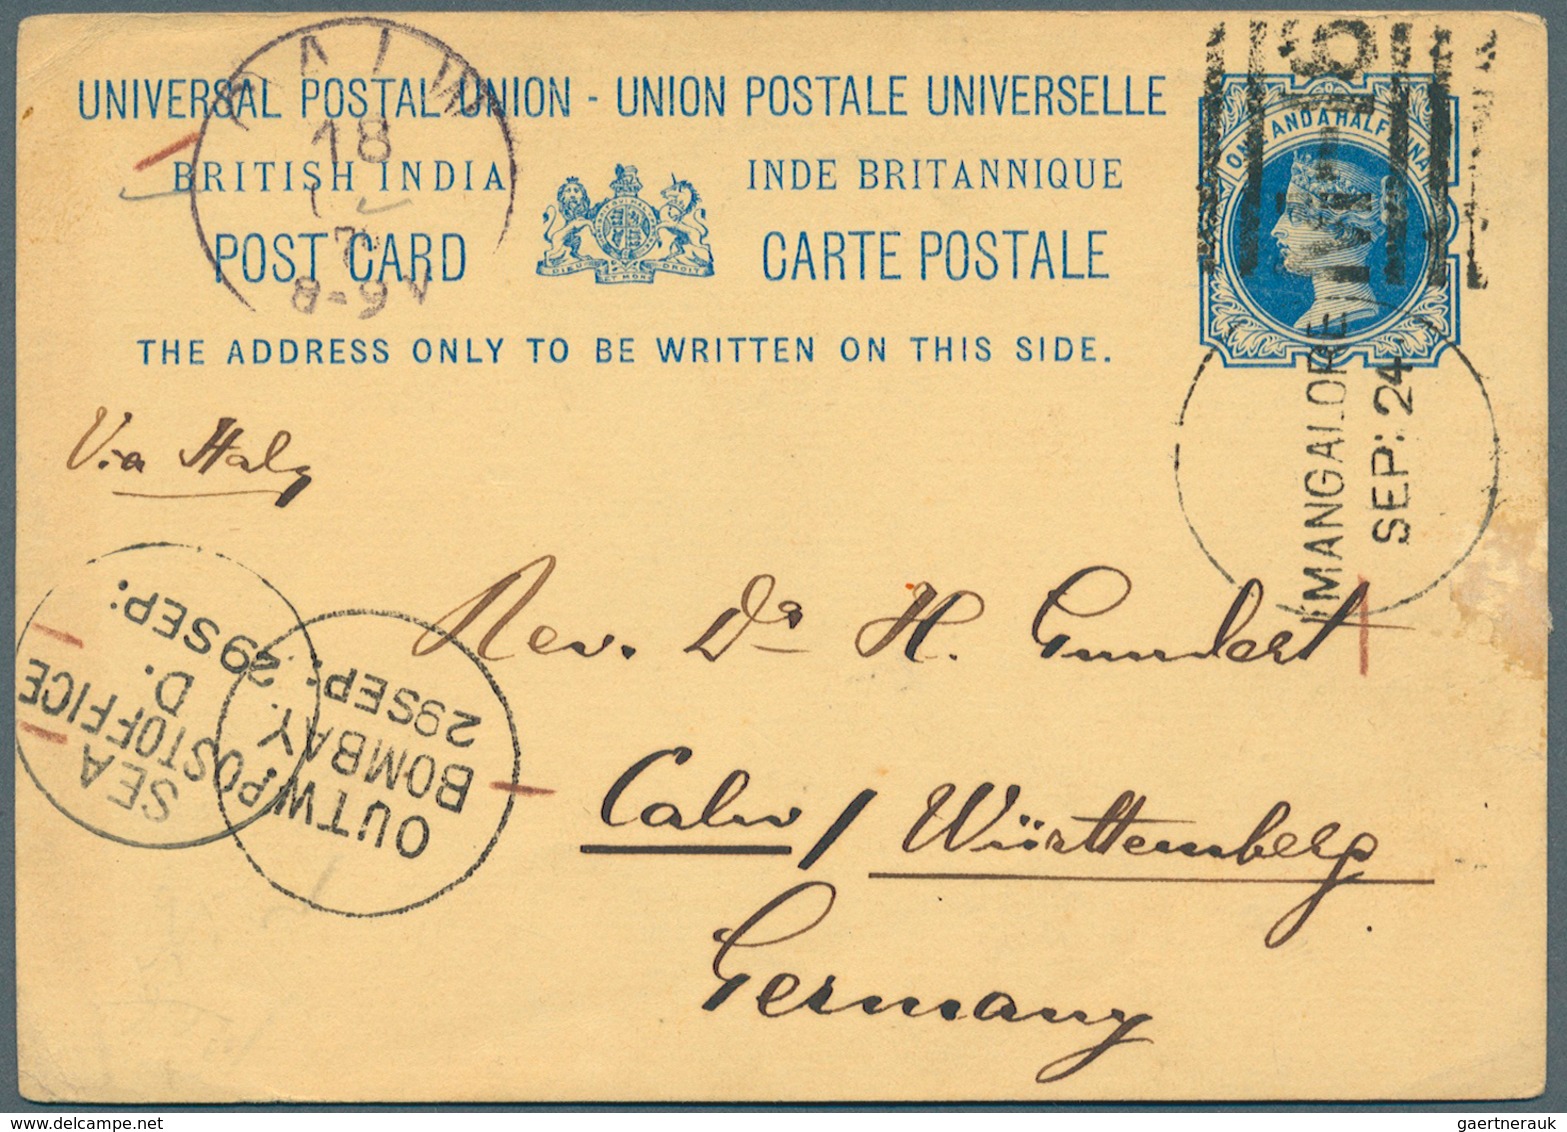 UNIVERSAL POSTAL UNION - UNION POSTALE UNIVERSELLE
BRITISH INDIA INDE BRITANNIQUE
POST CARD CARTE POSTALE
THE ADDRESS ONLY TO BE WRITTEN ON THIS SIDE.
ONE AND A HALF ANNA
DIEU ET MON DROIT
CALW
18
8-9 V
MANGALORE
SEP: 24
Via Italy
SEA
POST OFFICE
D.
29 SEP:
OUTW
BOMBAY.
29 SEP:
Rev. Dr H. Gundert
Calw / Württemberg
Germany
gaertnerauk